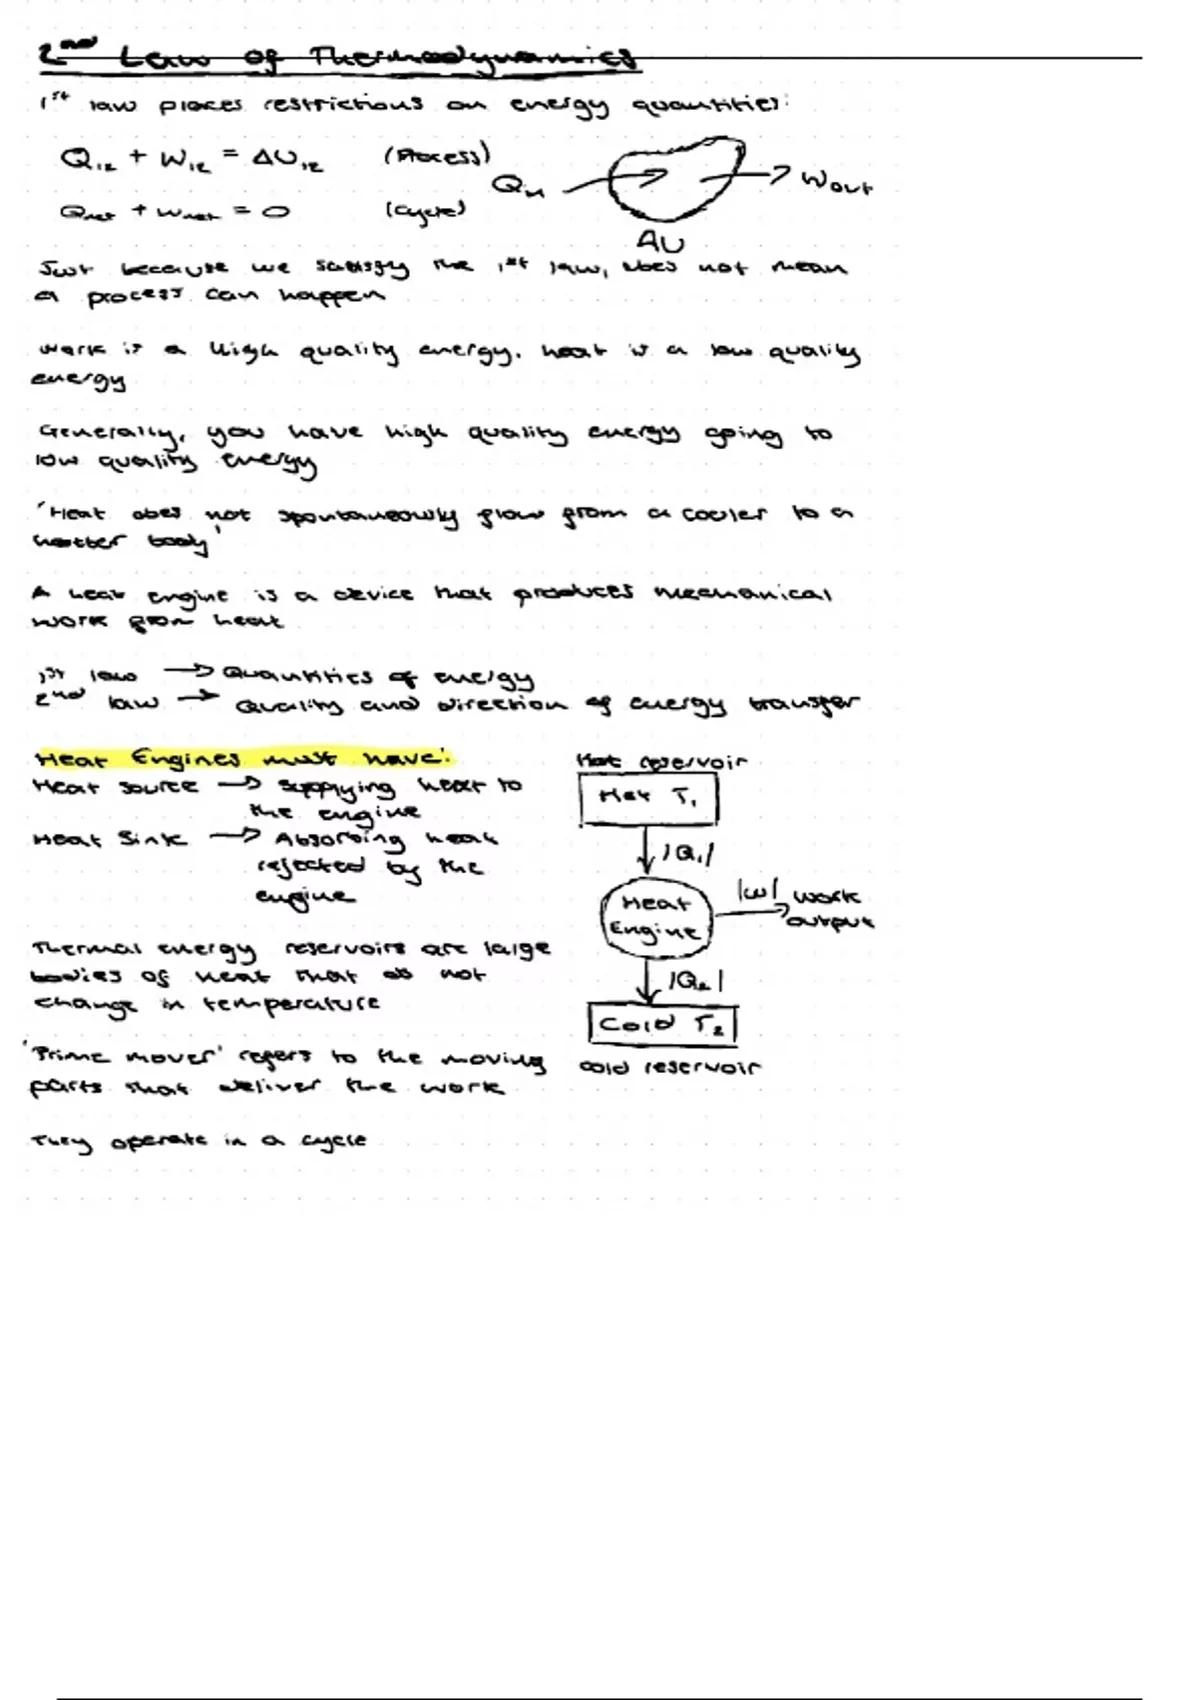 2nd Law of Thermodynamics
1st law places restrictions on energy quantities:
Q12 + W12 = ΔU12 (Process)
Qnet + Wnet = 0 (Cycle)
Qin
Wout
ΔU
Just because we satisfy the 1st law, does not mean
a process can happen
Work is a high quality energy, heat is a low quality
energy
Generally, you have high quality energy going to
low quality energy
'Heat does not spontaneously flow from a cooler to a
hotter body'
A heat engine is a device that produces mechanical
work from heat
1st law → Quantities of energy
2nd law → Quality and direction of energy transfer
Heat Engines must have:
Heat source → Supplying heat to
the engine
Heat Sink → Absorbing heat
rejected by the
engine
Thermal energy reservoirs are large
bodies of heat that do not
change in temperature
'Prime mover' refers to the moving
parts that deliver the work
They operate in a cycle
Hot reservoir
Hot T1
|Q1|
Heat
Engine
|W| work
output
|Q2|
Cold T2
cold reservoir